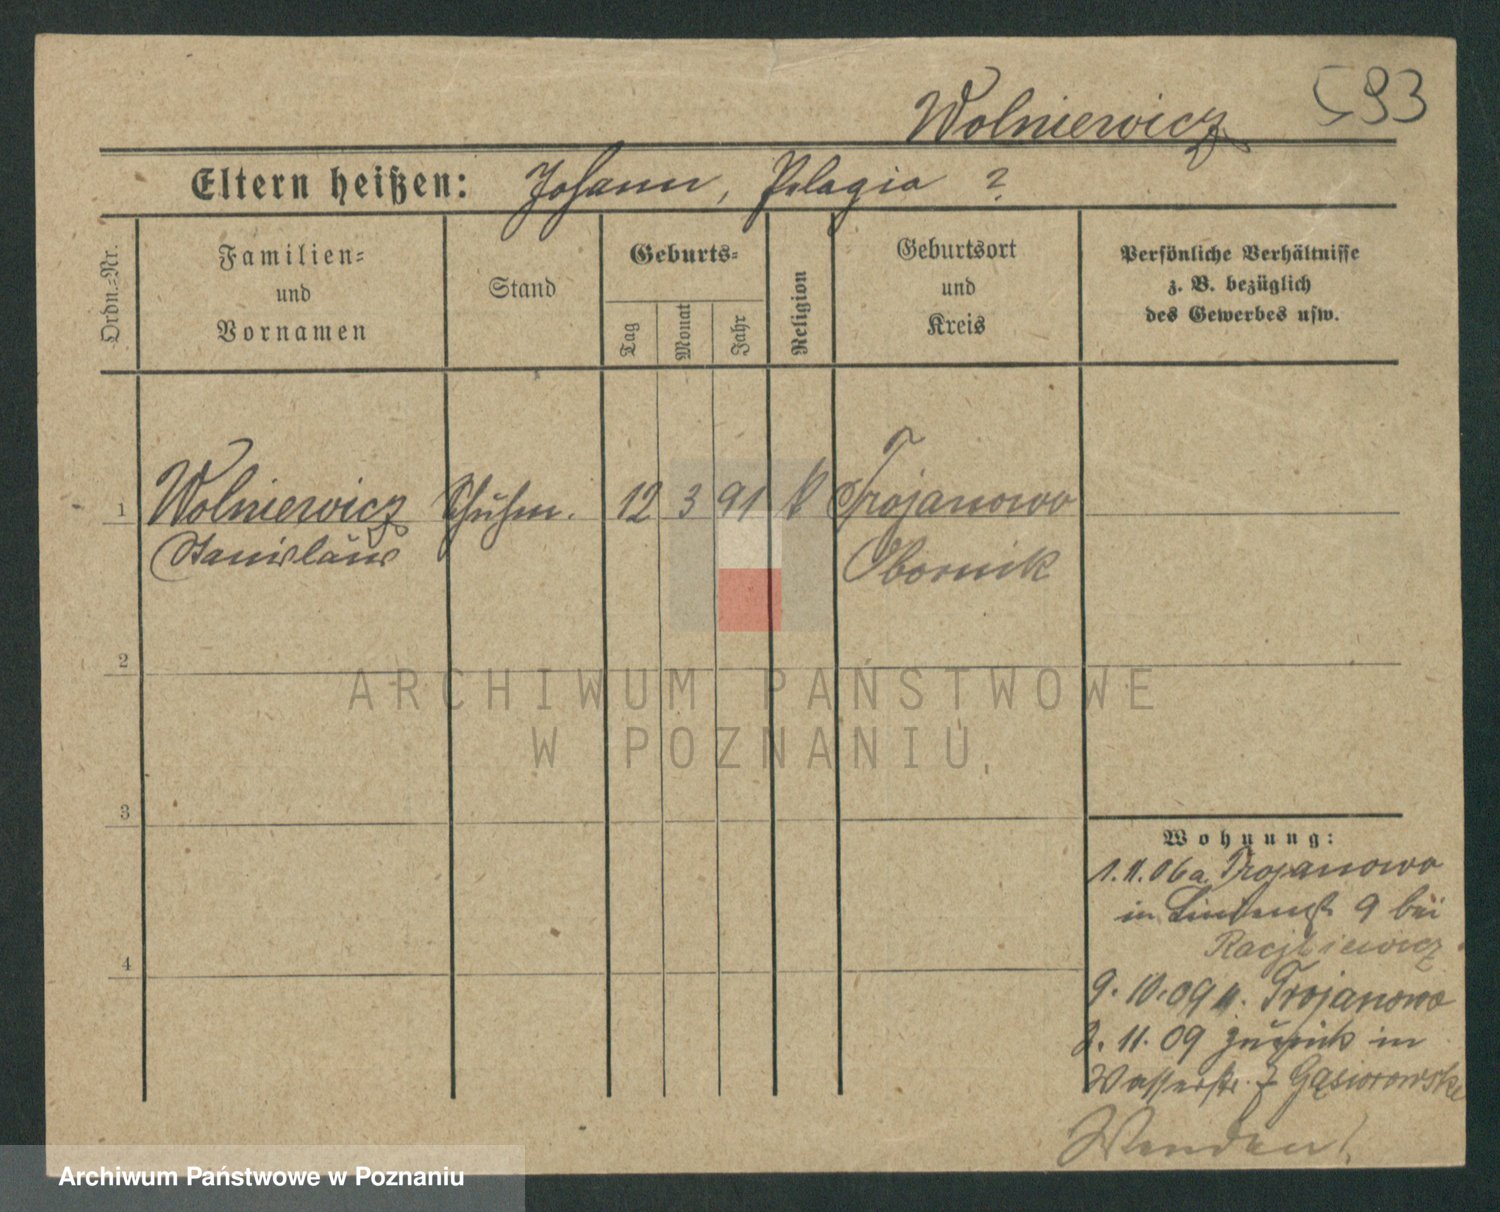 Wolniewicz
593
Eltern heißen: Johann, Pelagia ?
Ordn.=Nr.
Familien=
und
Vornamen
Stand
Geburts=
Tag
Monat
Jahr
Religion
Geburtsort
und
Kreis
Persönliche Verhältnisse
z. B. bezüglich
des Gewerbes usw.
1 Wolniewicz Schuhm. 12 3 91 k Trojanowo
Stanislaus Obornik
2
3
4
ARCHIWUM PAŃSTWOWE
W POZNANIU
Wohnung:
1.11.06 a. Trojanowo
in Lindenst 9 bei
9.10.09 n. Trojanowo
2.11.09 zurück in
Wasserstr. 7 Gąsiorowski
Wenden!
Archiwum Państwowe w Poznaniu